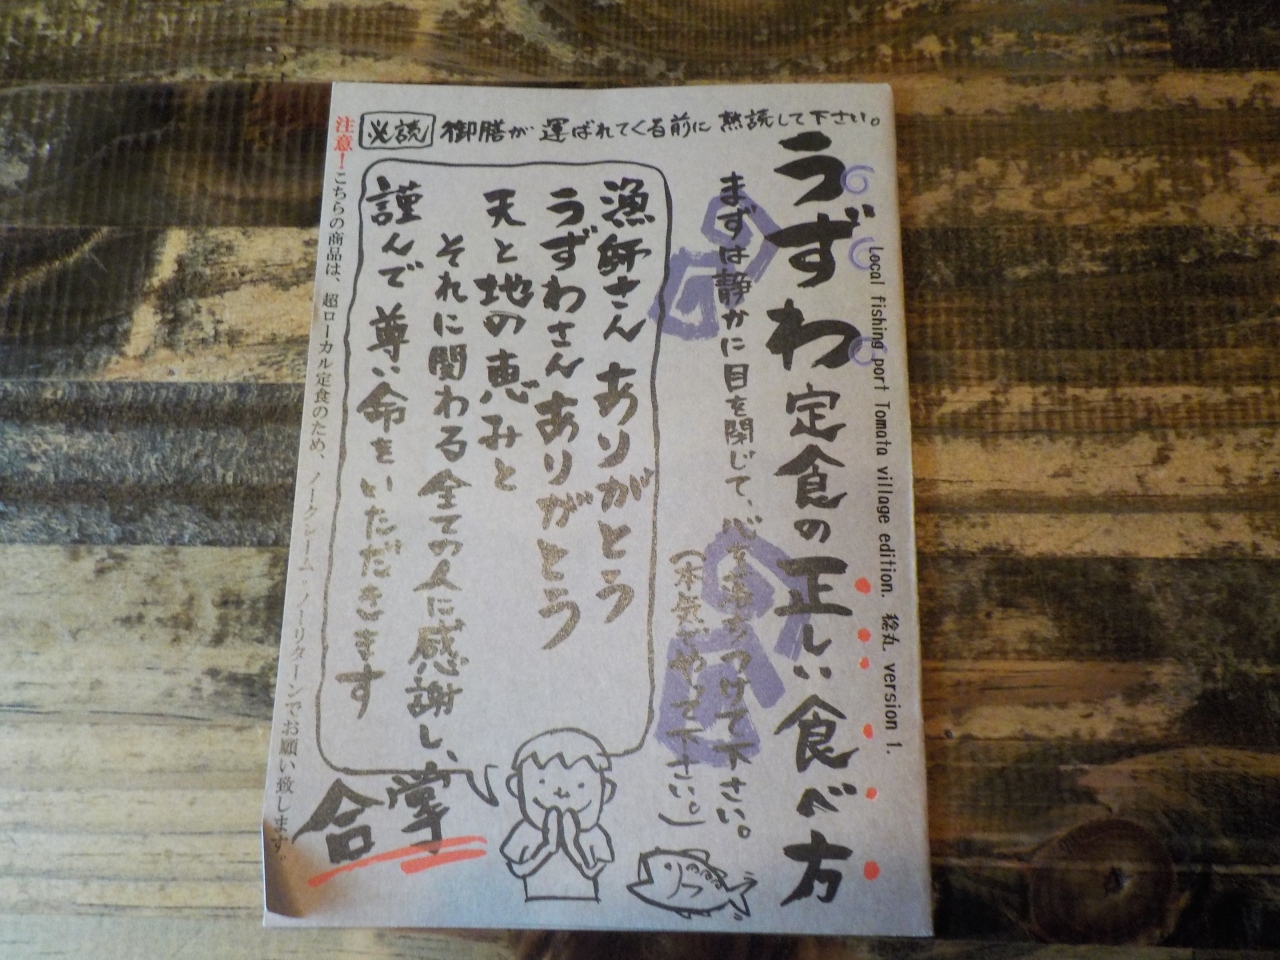 必読 御膳が運ばれてくる前に熟読して下さい。
Local fishing port Tomata village edition. 稔丸 version 1.
うずわ定食の正しい食べ方
まずは静かに目を閉じて、心を落ちつけて下さい。
(本気でやって下さい。)
漁師さんありがとう
うずわさんありがとう
天と地の恵みと
それに関わる全ての人に感謝し、
謹んで尊い命をいただきます
合掌
注意!こちらの商品は、超ローカル定食のため、ノークレーム・ノーリターンでお願い致します。